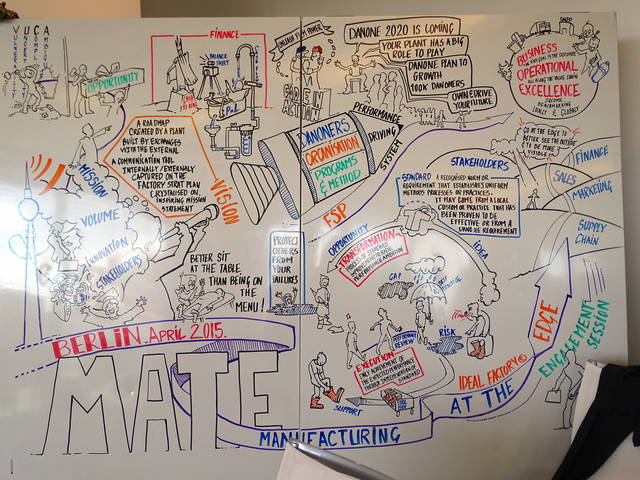 VUCA
FINANCE
OPPORTUNITY
BALANCE
SHEET
P&L
CASH IS KING
DANONE 2020 IS COMING
YOUR PLANT HAS A BIG
ROLE TO PLAY
DANONE PLAN TO
GROWTH
100K DANONERS
OWN & DRIVE
YOUR FUTURE
BUSINESS
OPERATIONAL
ALL ALONG THE VALUE CHAIN
EXCELLENCE
LOCALLY & GLOBALLY
A ROADMAP
CREATED BY A PLANT
BUILT BY EXCHANGES
WITH THE EXTERNAL
A COMMUNICATION TOOL
INTERNALLY/EXTERNALLY
CAPTURED ON THE
FACTORY STRAT PLAN
CRYSTALISED ON
INSPIRING MISSION
STATEMENT
VISION
MISSION
VOLUME
INNOVATION
STAKEHOLDERS
DANONERS
ORGANISATION
PROGRAMS
& METHOD
PERFORMANCE
DRIVING
SYSTEM
FSP
STAKEHOLDERS
GO AT THE EDGE TO
BETTER SEE THE OUTSIDE
& TO BE MORE
VISIBLE
FINANCE
SALES
MARKETING
SUPPLY
CHAIN
STANDARD A RECOGNISED NORM OR
REQUIREMENT THAT ESTABLISHES UNIFORM
METHODS PROCESSES OR PRACTICES.
IT MAY COME FROM A LOCAL
CUSTOM OR PRACTICE THAT HAS
BEEN PROVEN TO BE
EFFECTIVE OR FROM A
DANONE REQUIREMENT
BETTER SIT
AT THE TABLE
THAN BEING ON
THE
MENU!
PROTECT
OTHERS
FROM
YOUR
FAILURES
OPPORTUNITY
TRANSFORMATION
IDEA
GAP
RISK
PERFORMANCE
REVIEW
EXECUTION
SUPPORT
BERLIN. APRIL 2015.
MATE
MANUFACTURING
AT THE
EDGE
IDEAL FACTORY®
ENGAGEMENT
SESSION